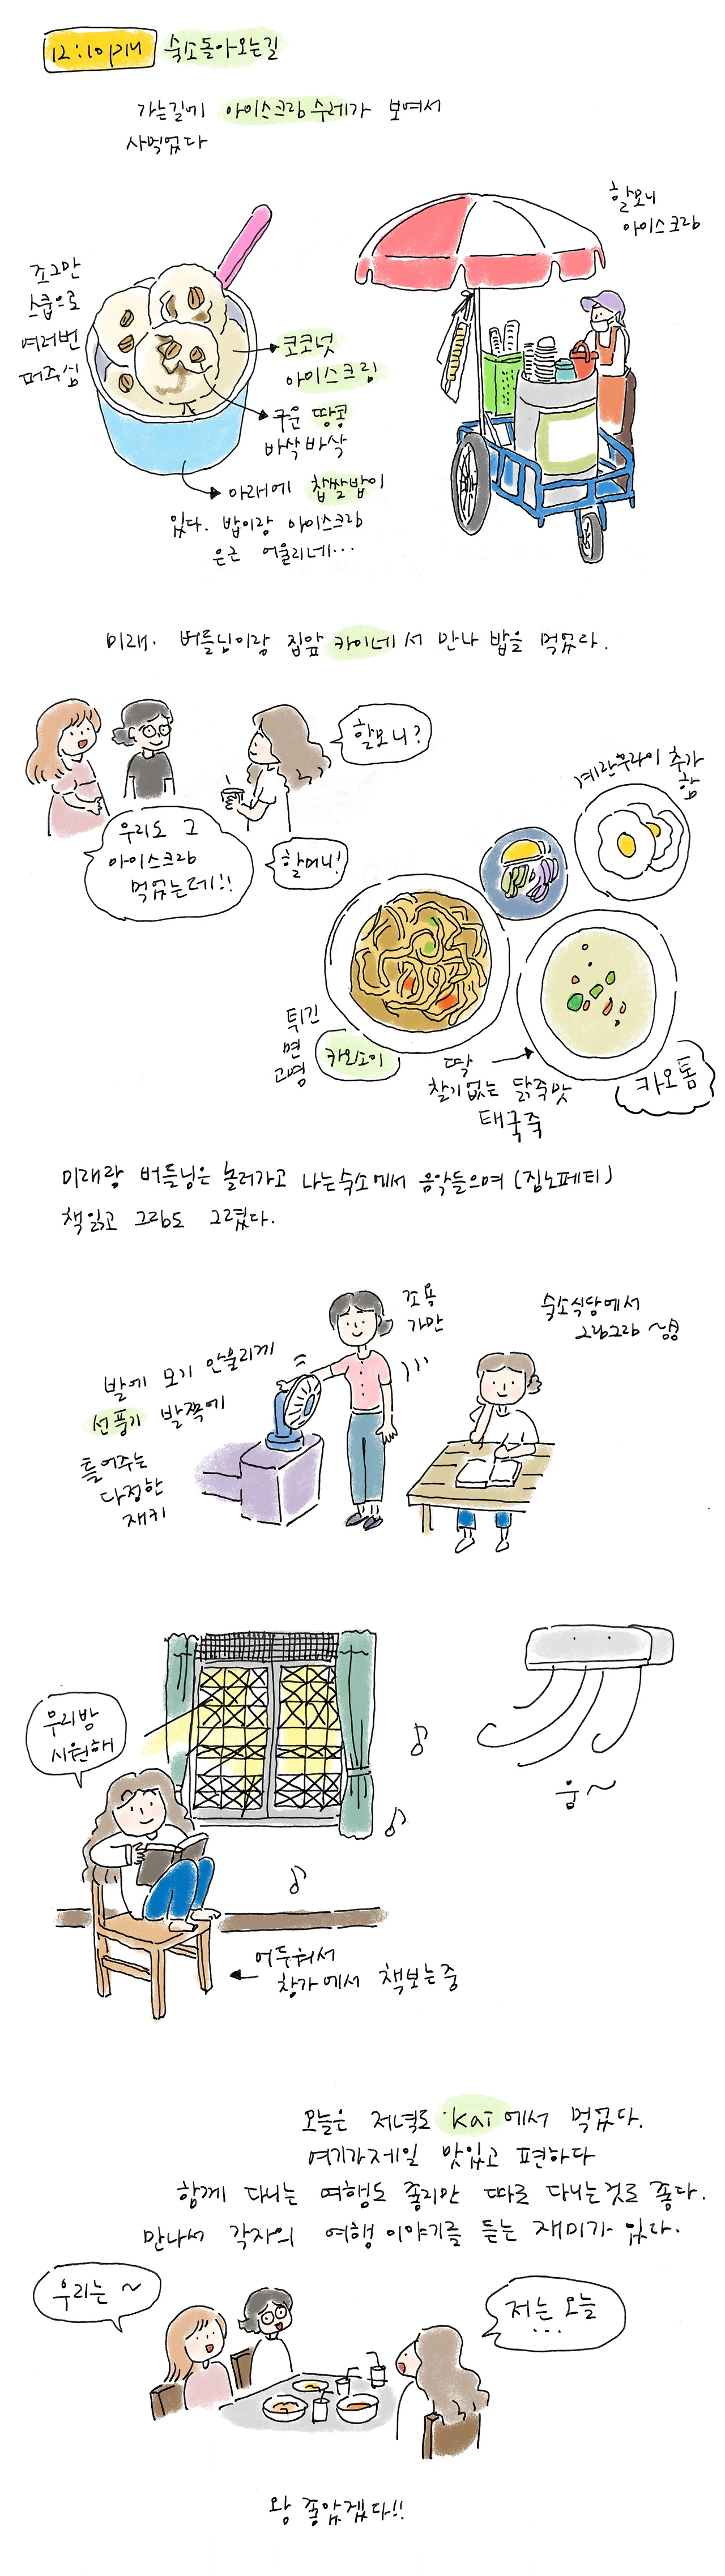 12:10pm 숙소돌아오는길
가는길에 아이스크림 수레가 보여서
사먹었다
할모니
아이스크림
조그만
스쿱으로
여러번
퍼주심
코코넛
아이스크림
구운 땅콩
바삭바삭
아래에 찹쌀밥이
있다. 밥이랑 아이스크림
은근 어울리네...
미래. 버들님이랑 집앞 카이네서 만나 밥을 먹었다.
할모니?
우리도 그
아이스크림
먹었는데!!
할머니!
계란후라이 추가
함
튀긴
면
고명
카오소이
딱
찰기없는 닭죽맛
태국죽
카오톰
미래랑 버들님은 놀러가고 나는숙소에서 음악들으며 (짐노페티)
책읽고 그림도 그렸다.
조용
가만
숙소식당에서
그림그림~
발에 모기 안물리게
선풍기 발쪽에
틀어주는
다정한
재키
우리방
시원해
웅~
어두워서
창가에서 책보는중
오늘은 저녁도 kai에서 먹었다.
여기가제일 맛있고 편하다
함께 다니는 여행도 좋지만 따로 다니는것도 좋다.
만나서 각자의 여행 이야기를 듣는 재미가 있다.
우리는 ~
저는 오늘
...
왕 좋았겠다!!